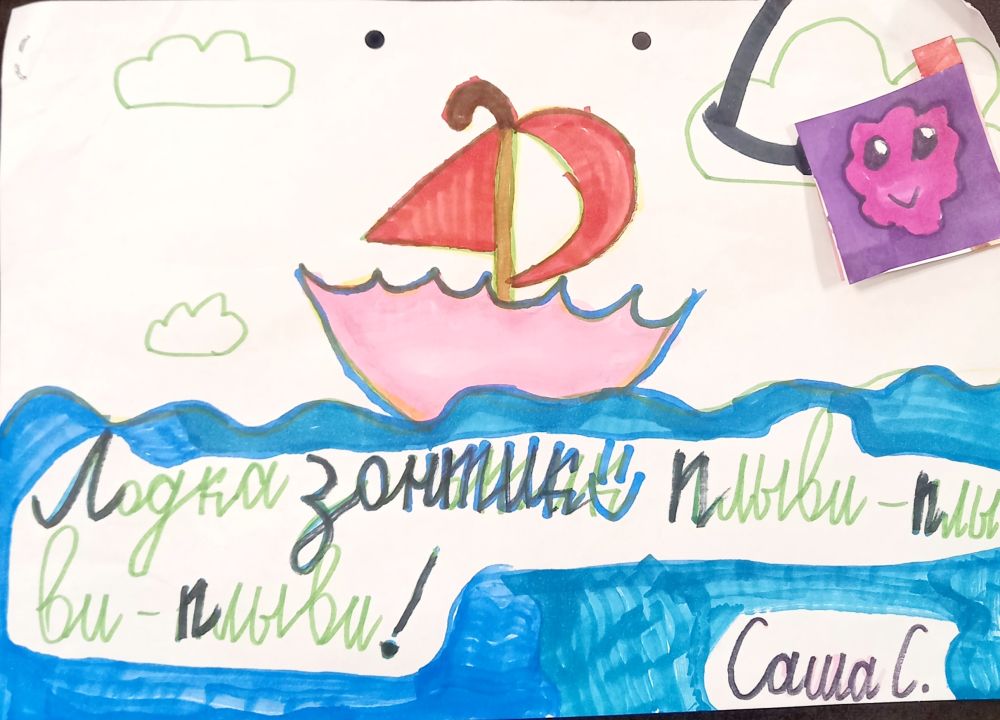 Лодка зонтик плыви-плы
ви-плыви!
Саша С.